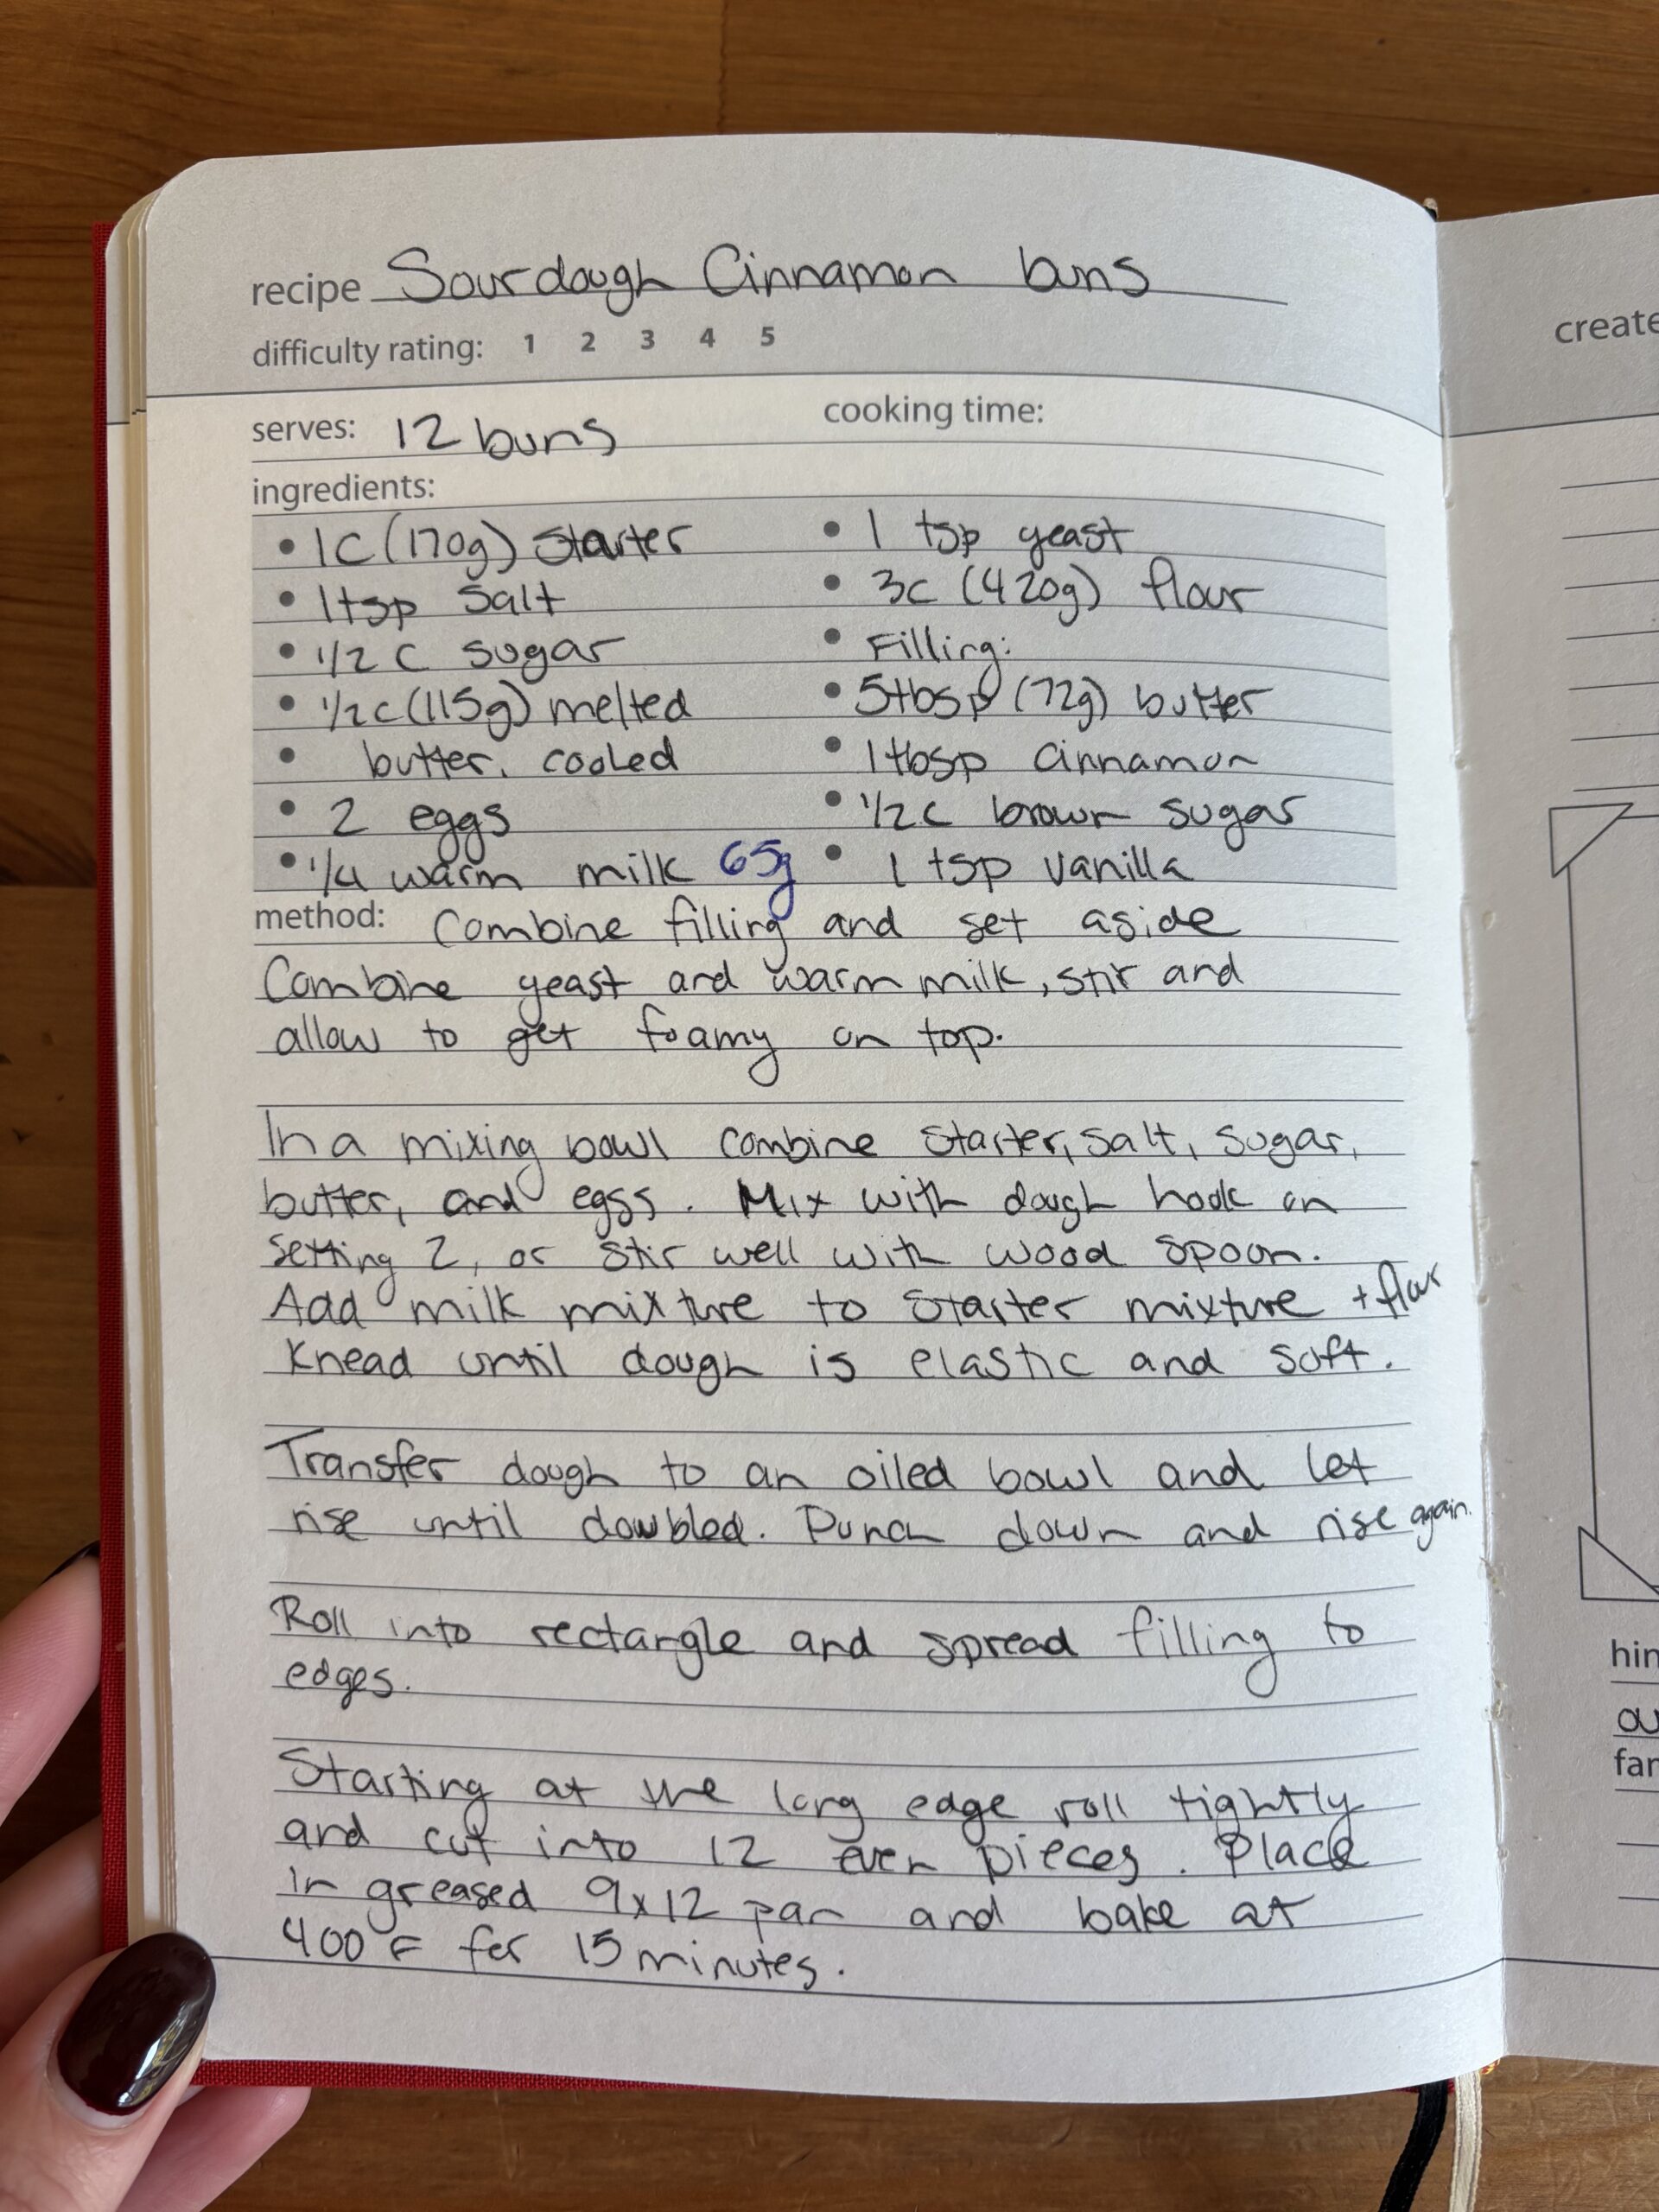 recipe Sourdough Cinnamon buns
difficulty rating: 1 2 3 4 5
serves: 12 buns
cooking time:
ingredients:
• 1C (170g) Starter
• 1tsp Salt
• 1/2 C sugar
• 1/2c (115g) melted
• butter, cooled
• 2 eggs
• 1/4 warm milk 65g
• 1 tsp yeast
• 3c (420g) flour
• Filling:
• 5tbsp (72g) butter
• 1tbsp cinnamon
• 1/2c brown sugar
• 1 tsp vanilla
method: Combine filling and set aside
Combine yeast and warm milk, stir and
allow to get foamy on top.
In a mixing bowl combine starter, salt, sugar,
butter, and eggs. Mix with dough hook on
setting 2, or stir well with wood spoon.
Add milk mixture to starter mixture + flour
Knead until dough is elastic and soft.
Transfer dough to an oiled bowl and let
rise until doubled. Punch down and rise again.
Roll into rectangle and spread filling to
edges.
Starting at the long edge roll tightly
and cut into 12 even pieces. Place
in greased 9x12 pan and bake at
400°F for 15 minutes.
create
hin
ou
fan